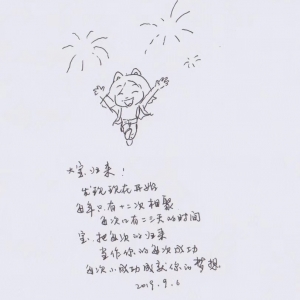 大宝归来！
发现现在开始
每年只有十二次相聚
每次只有二三天的时间
宝，把每次的归来
当作你的每次成功
每次小成功成就你的梦想
2019.9.6